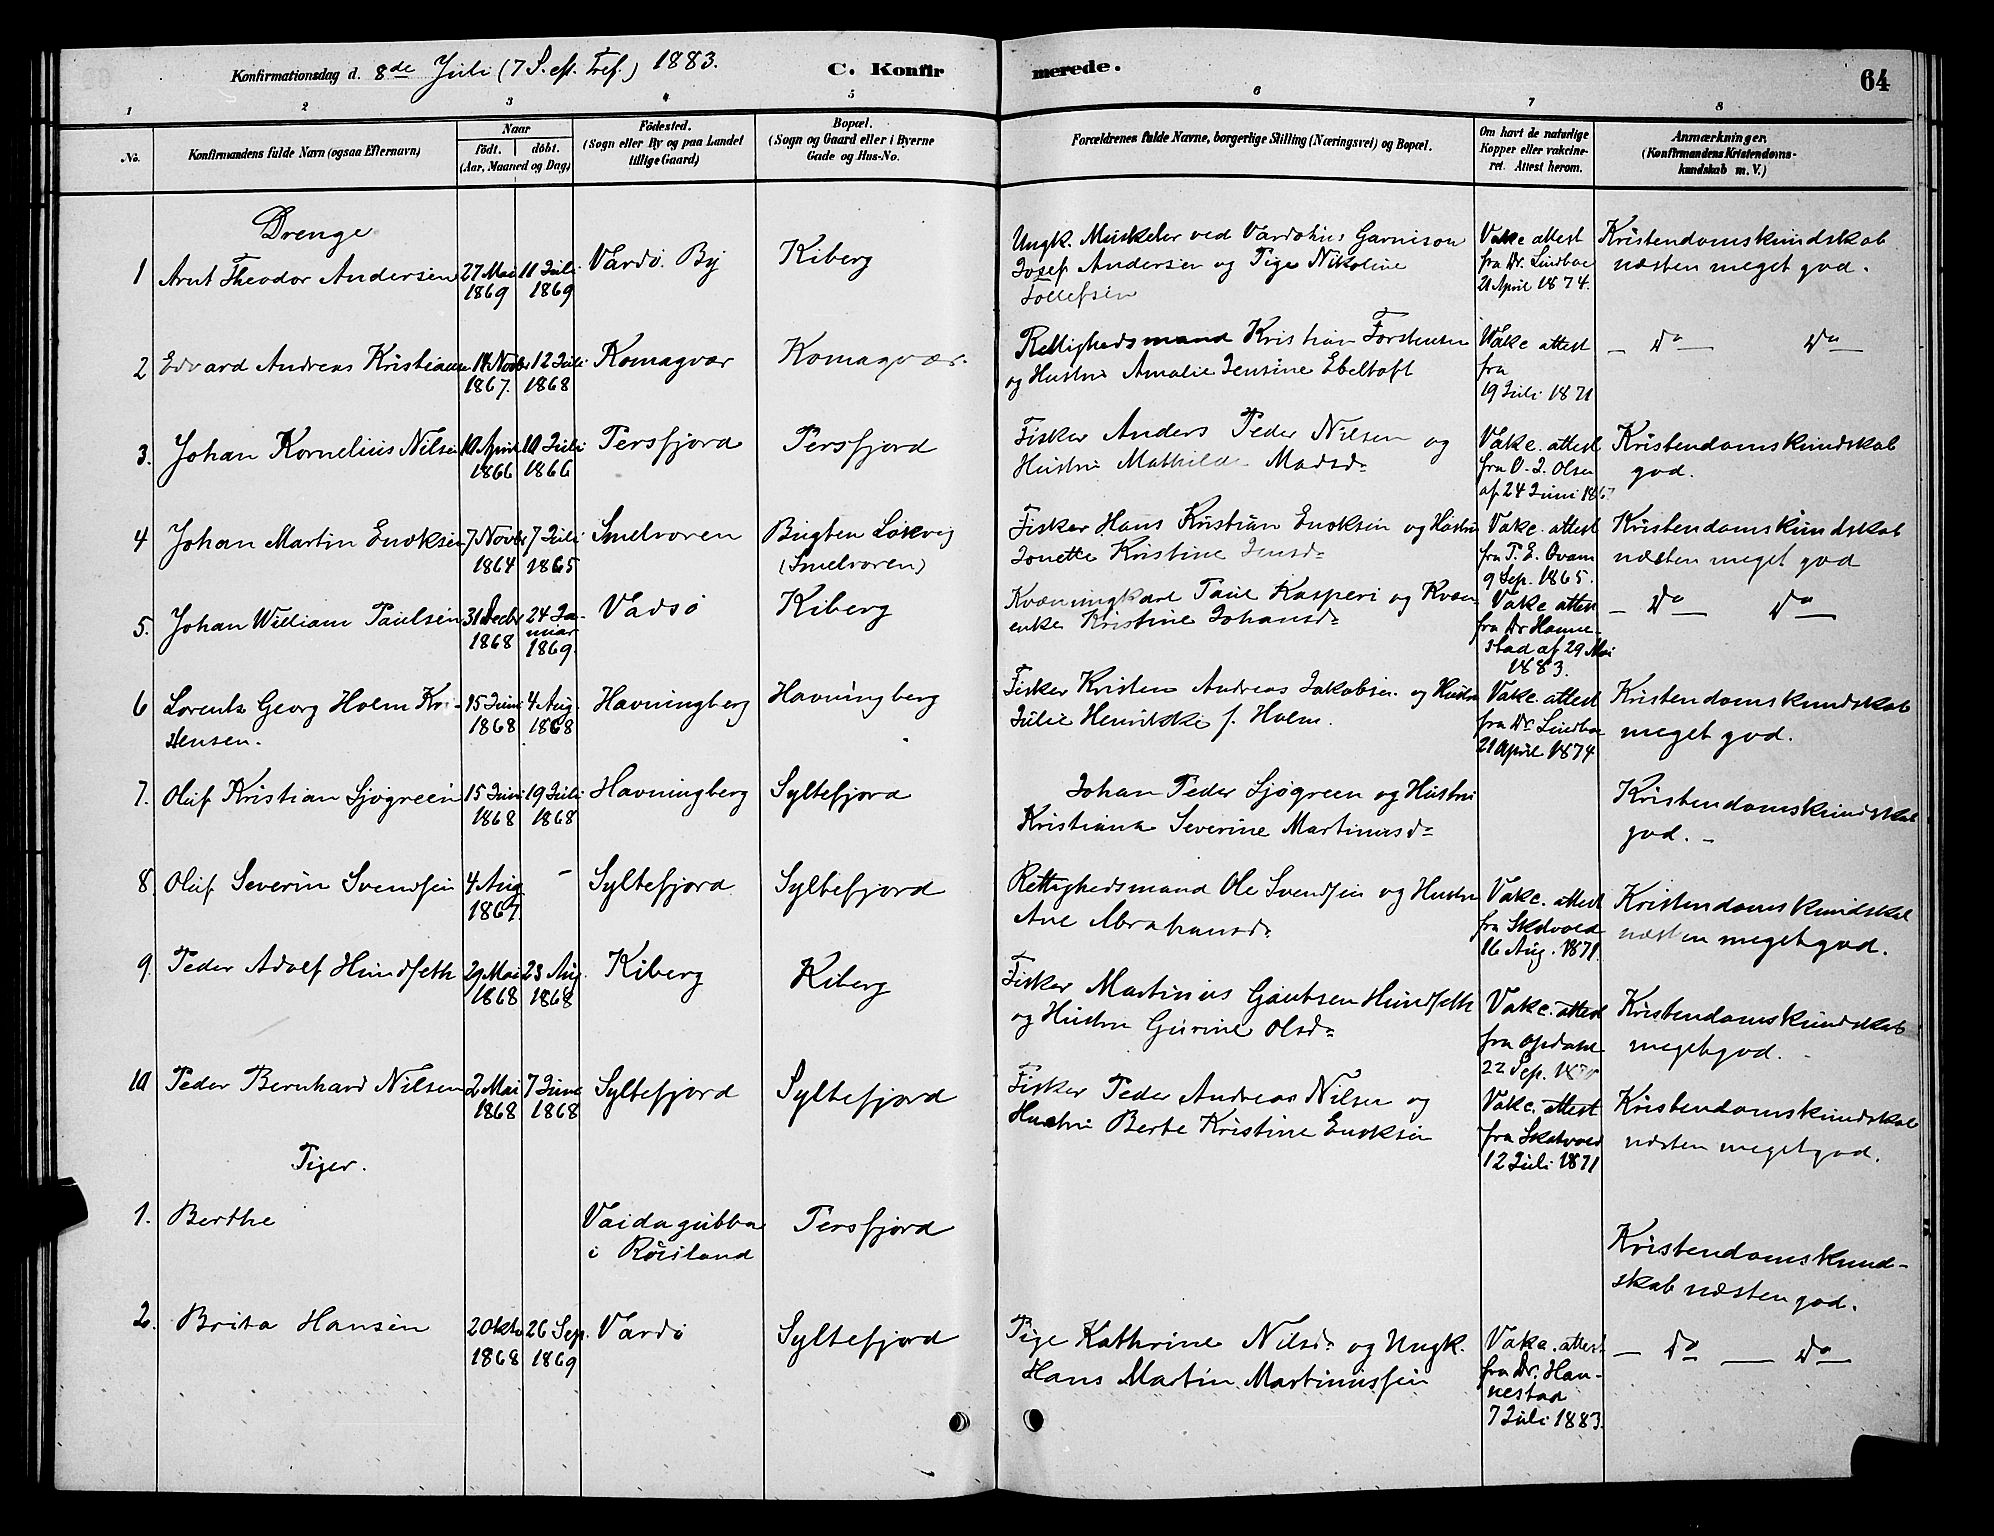 Konfirmationsdag d. 8de Juli (7 S. eft. Tref.) 1883.
C. Konfirmerede.
64
1 2 3 4 5 6 7 8
No.
Konfirmandens fulde Navn (ogsaa Efternavn)
Naar
født. døbt.
(Aar, Maaned og Dag)
Fødested.
(Sogn eller By og paa Landet
tillige Gaard)
Bopæl.
(Sogn og Gaard eller i Byerne
Gade og Hus-No.
Forældrenes fulde Navne, borgerlige Stilling (Næringsvei) og Bopæl.
Om havt de naturlige
Kopper eller vakcine-
ret. Attest herom.
Anmærkninger.
(Konfirmandens Kristendoms-
kundskab m. V.)
Drenge
1 Arnt Theodor Andersen
27 Mai
1869
11 Juli
1869
Vardø By
Kiberg
Ungk. Muskeler ved Vardøhus Garnison
Josef Andersen og Pige Nikoline
Tollefsen
Vakc attest
fra Dr. Lindboe
21 April 1874.
Kristendomskundskab
næsten meget god.
2 Edvard Andreas Kristian
14 Novbr
1867.
12 Juli
1868
Komagvær
Komagvær.
Rettighedsmand Kristian Torstensen
og Hustru Amalie Jensine Ebeltoft
Vakc attest
fra
19 Juli 1871
— Do — Do —
3. Johan Kornelius Nilsen
10 April
1866
10 Juli
1866
Persfjord
Persfjord
Fisker Anders Peder Nilsen og
Hustru Mathilde Madsdr
Vakc. attest
fra O. J. Olsen
af 24 Juni 186
Kristendomskundskab
god.
4 Johan Martin Enoksen
7 Novbr
1864
7 Juli
1865
Smelroren
Bugten Løkvig
(Smelroren)
Fisker Hans Kristian Enoksen og Hustru
Jonette Kristine Jensdr
Vakc. attest
fra P. E. Qvam
9 Sep. 1865.
Kristendomskundskab
næsten meget god
5. Johan William Paulsen
31 Decbr
1868
24 Ja-
nuar
1869.
Vadsø
Kiberg
Kvænungkarl Paul Kasperi og Kvæn-
enke Kristine Johansdr
Vakc. attest
fra Dr Hanne-
stad af 29 Mai
1883.
— Do — Do —
6 Lorents Georg Holm Kri-
stensen.
15 Juni
1868
4 Aug.
1868
Havningberg
Havningberg
Fisker Kristen Andreas Jakobsen og Hustru
Julie Henrikke f. Holm.
Vakc. attest
fra Dr. Lindboe
21 April 1874
Kristendomskundskab
meget god.
7. Oluf Kristian Sjøgreen
15 Juni
1868
19 Juli
1868
Havningberg
Syltefjord
Johan Peder Sjøgreen og Hustru
Kristiana Severine Martinusdr
Kristendomskundskab
god. -
8. Oluf Severin Svendsen
4 Aug
1867.
-
Syltefjord
Syltefjord
Rettighedsmand Ole Svendsen og Hustru
Ane Abrahamsdr
Vakc. attest
fra Skatvold
16 Aug. 1871.
Kristendomskundskab
næsten meget god.
9. Peder Adolf Hundseth
29 Mai
1868
23 Aug.
1868
Kiberg
Kiberg
Fisker Martinius Gautsen Hundseth
og Hustru Gurine Olsdr
Vakc. attest
fra Opdahl
22 Sep.
Kristendomskundskab
meget god.
10 Peder Bernhard Nilsen
2 Mai
1868
7 Juni
1868
Syltefjord
Syltefjord
Fisker Peder Andreas Nilsen og
Hustru Berte Kristine Enoksen
Vakc. attest
fra Skatvold
12 Juli 1871
Kristendomskundskab
næsten meget god.
Piger.
1. Berthe
Vaidagubba
i Rusland
Persfjord
Kristendomskund-
skab næsten god.
2. Brita Hansen
2 Oktr
1868
26 Sep.
1869
Vardø
Syltefjord
Pige Kathrine Nilsdr og Ungk.
Hans Martin Martinussen
Vakc. attest
fra Dr. Han-
nestad
7 Juli 1883.
— Do — Do —